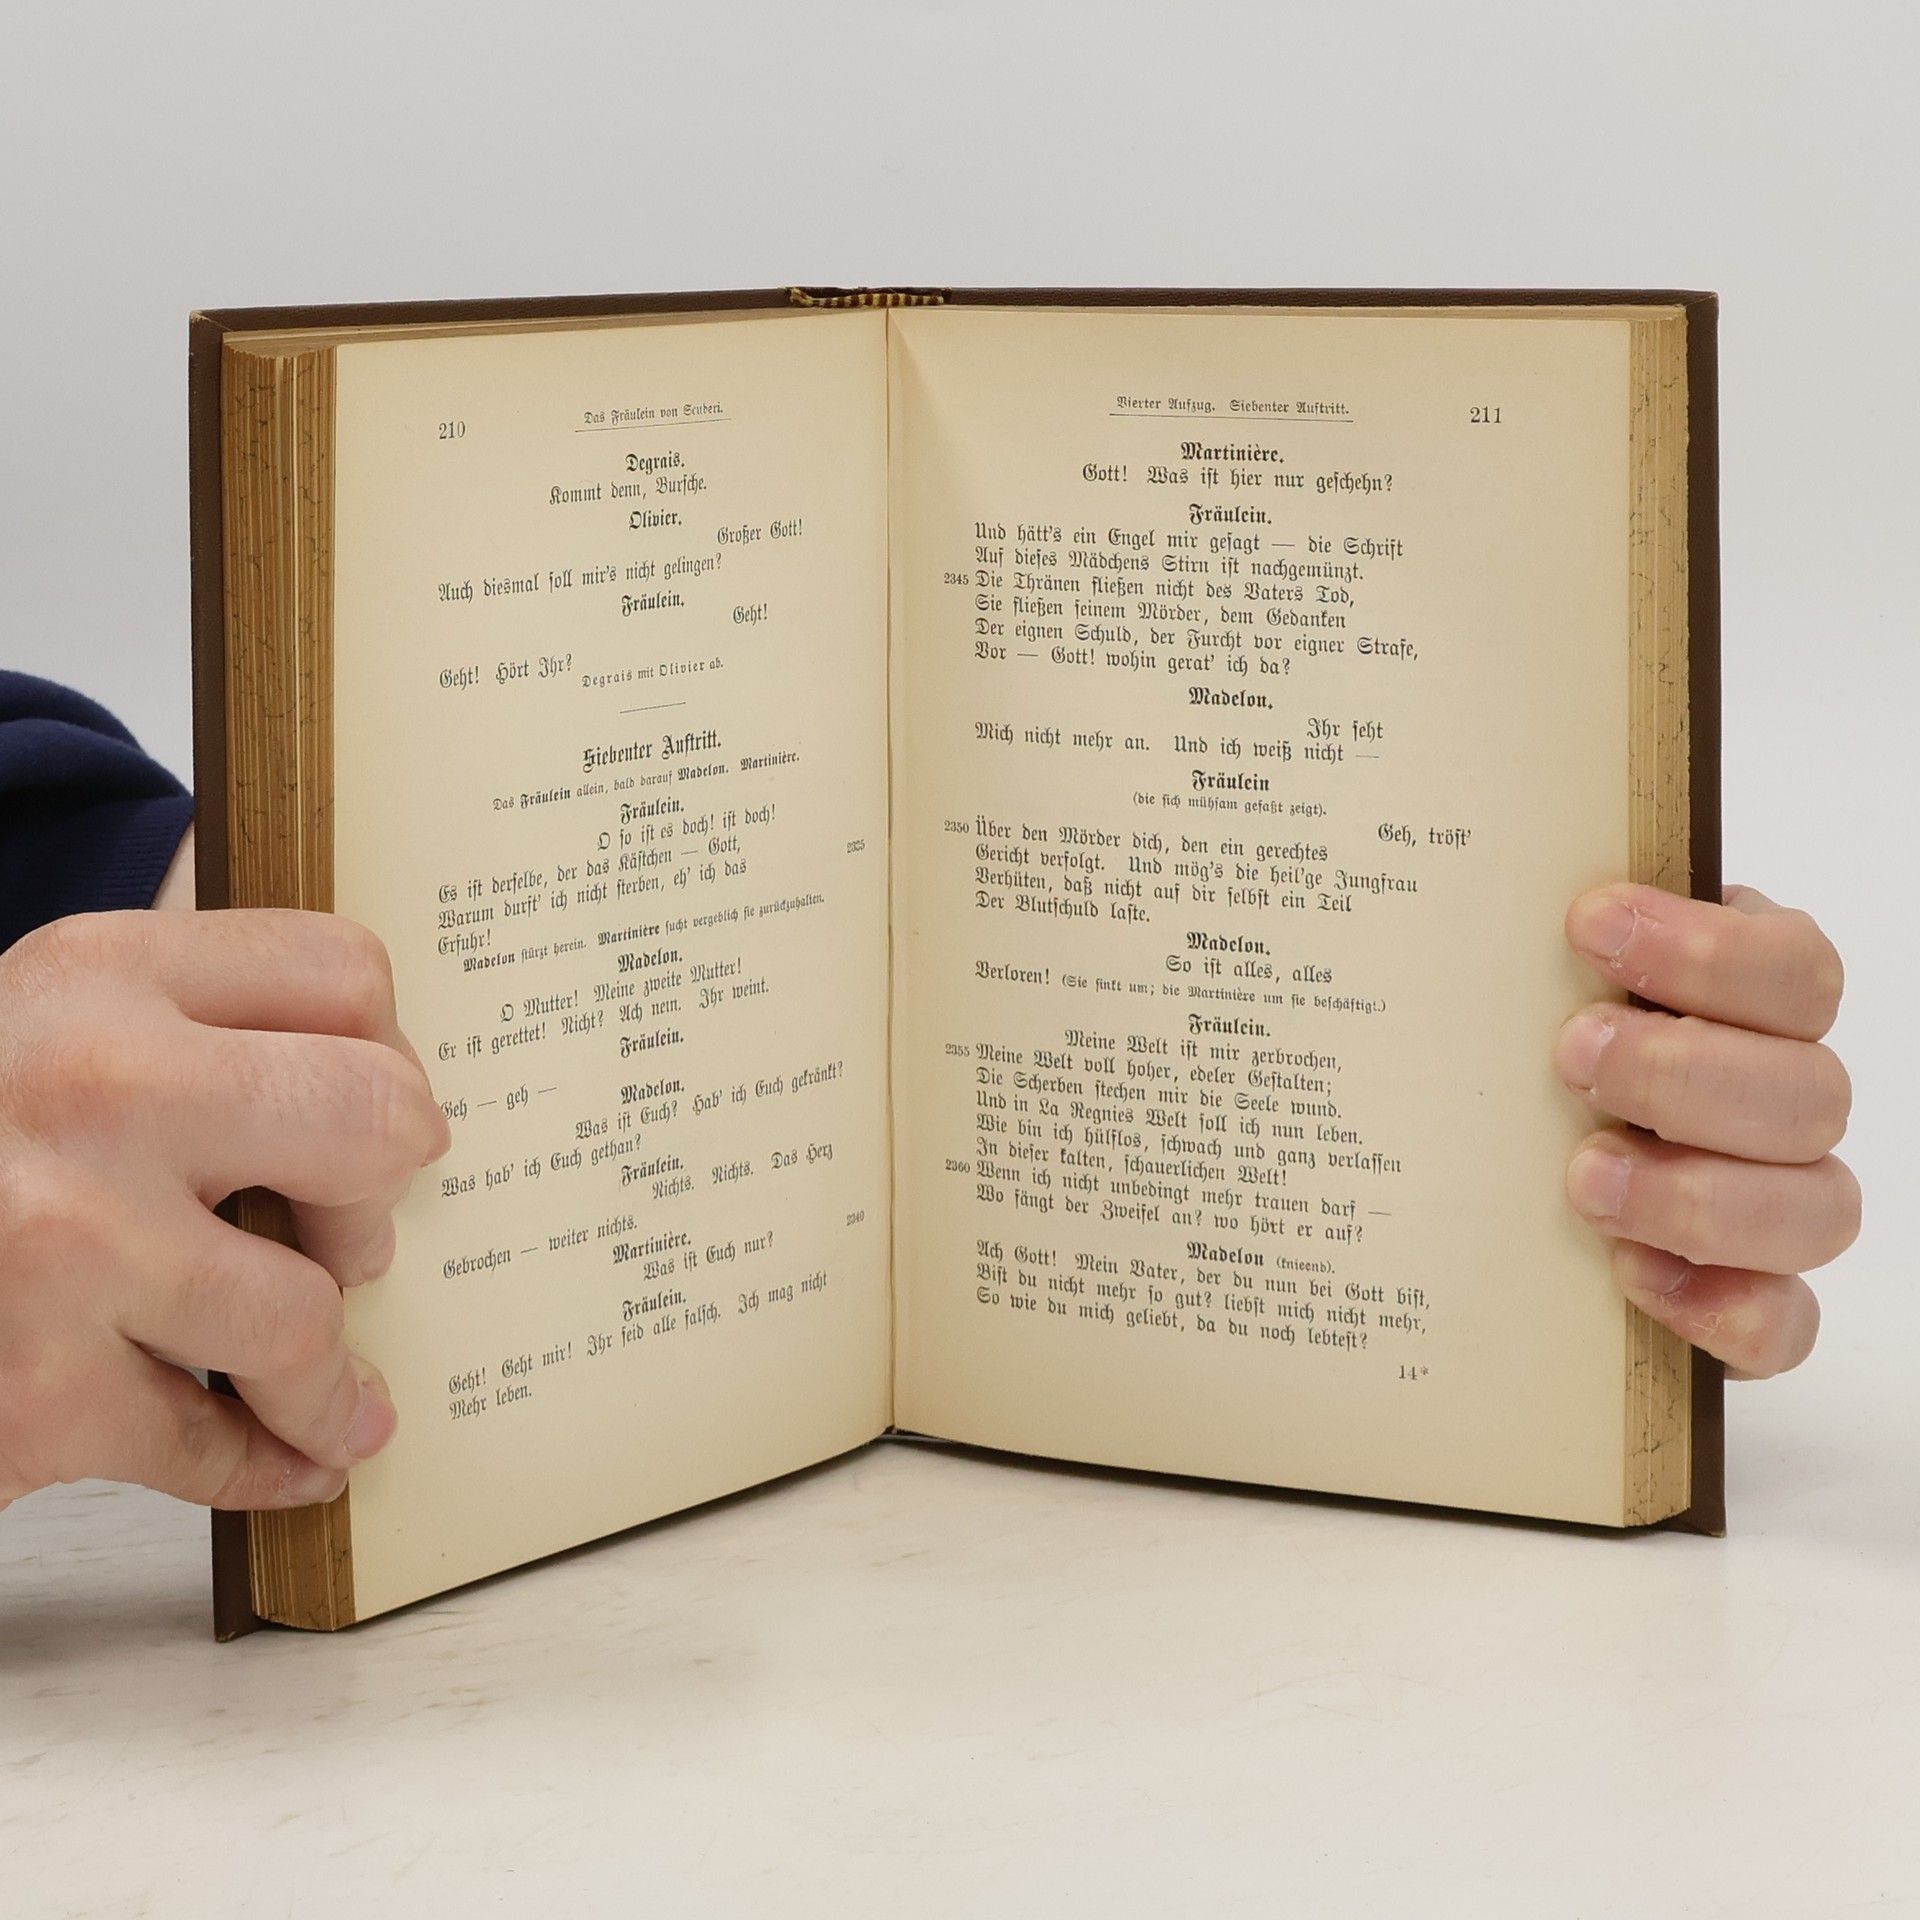 210
Das Fräulein von Scuderi.
Degrais.
Kommt denn, Bursche.
Olivier.
Großer Gott!
Auch diesmal soll mir's nicht gelingen?
Fräulein.
Geht!
Geht! Hört Ihr?
Degrais mit Olivier ab.
Siebenter Auftritt.
Das Fräulein allein, bald darauf Madelon. Martinière.
Fräulein.
O so ist es doch! ist doch!
Es ist derselbe, der das Kästchen — Gott, 2335
Warum durft' ich nicht sterben, eh' ich das
Erfuhr!
Madelon stürzt herein. Martinière sucht vergeblich sie zurückzuhalten.
Madelon.
O Mutter! Meine zweite Mutter!
Er ist gerettet! Nicht? Ach nein. Ihr weint.
Fräulein.
Geh — geh —
Madelon.
Was ist Euch? Hab' ich Euch gekränkt?
Was hab' ich Euch gethan?
Fräulein.
Nichts. Nichts. Das Herz
Gebrochen — weiter nichts. 2340
Martinière.
Was ist Euch nur?
Fräulein.
Geht! Geht mir! Ihr seid alle falsch. Ich mag nicht
Mehr leben.
Vierter Aufzug. Siebenter Auftritt.
211
Martinière.
Gott! Was ist hier nur geschehn?
Fräulein.
Und hätt's ein Engel mir gesagt — die Schrift
Auf dieses Mädchens Stirn ist nachgemünzt.
2345 Die Thränen fließen nicht des Vaters Tod,
Sie fließen seinem Mörder, dem Gedanken
Der eignen Schuld, der Furcht vor eigner Strafe,
Vor — Gott! wohin gerat' ich da?
Madelon.
Ihr seht
Mich nicht mehr an. Und ich weiß nicht —
Fräulein
(die sich mühsam gefaßt zeigt).
Geh, tröst'
2350 Über den Mörder dich, den ein gerechtes
Gericht verfolgt. Und mög's die heil'ge Jungfrau
Verhüten, daß nicht auf dir selbst ein Teil
Der Blutschuld laste.
Madelon.
So ist alles, alles
Verloren! (Sie sinkt um; die Martinière um sie beschäftigt.)
Fräulein.
Meine Welt ist mir zerbrochen,
2355 Meine Welt voll hoher, edeler Gestalten;
Die Scherben stechen mir die Seele wund.
Und in La Regnies Welt soll ich nun leben.
Wie bin ich hülflos, schwach und ganz verlassen
In dieser kalten, schauerlichen Welt!
2360 Wenn ich nicht unbedingt mehr trauen darf —
Wo fängt der Zweifel an? wo hört er auf?
Madelon (knieend).
Ach Gott! Mein Vater, der du nun bei Gott bist,
Bist du nicht mehr so gut? liebst mich nicht mehr,
So wie du mich geliebt, da du noch lebtest?
14*